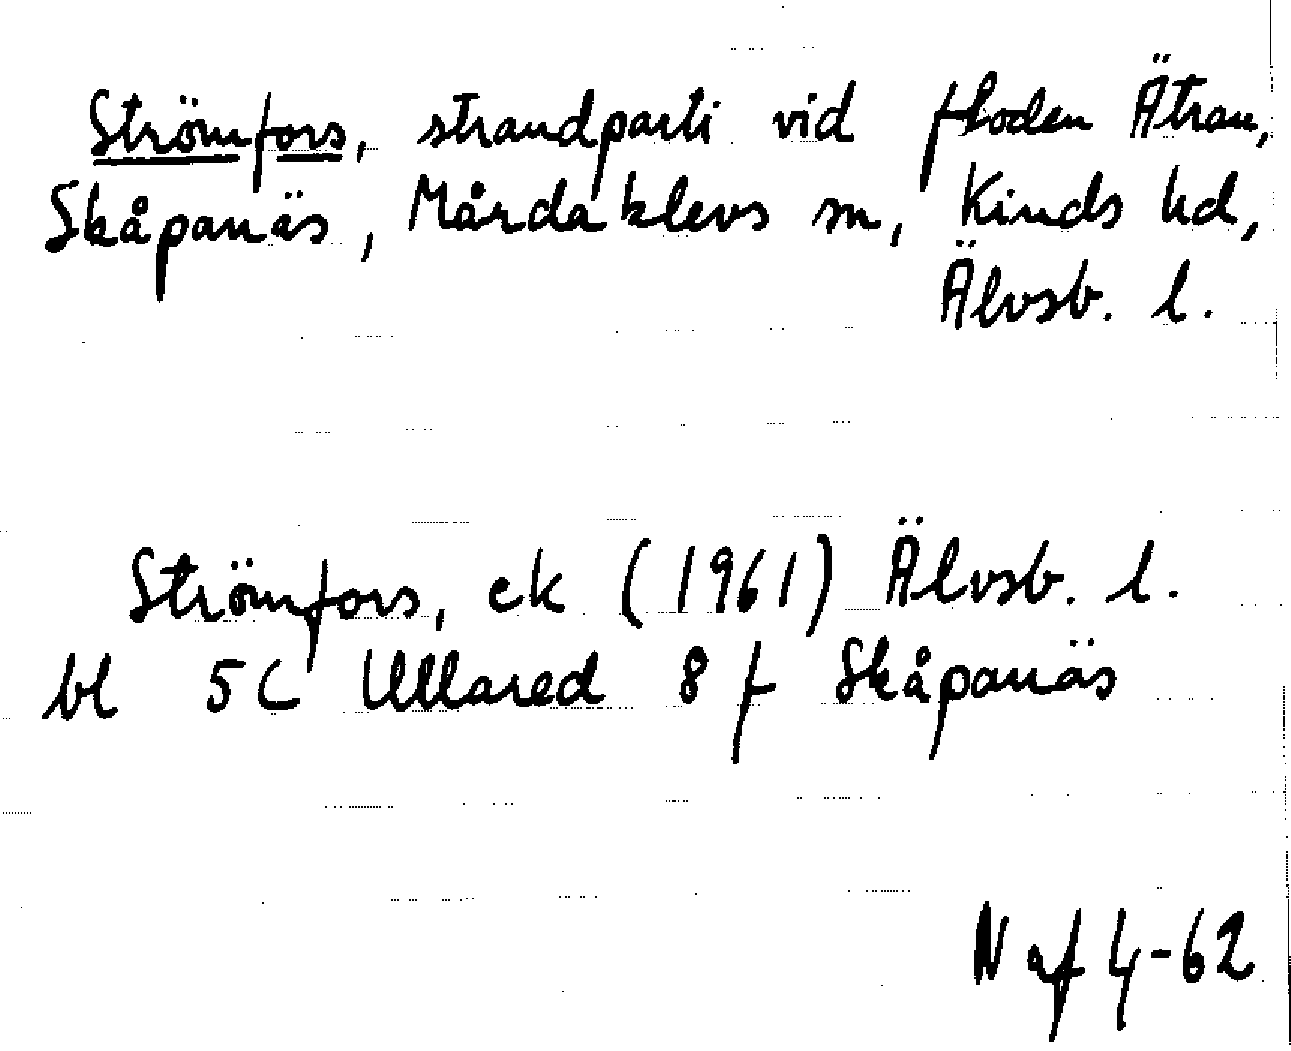 Strömfors, strandparti vid floden Ätran,
Skåpanäs, Mårdaklevs sn, Kinds hd,
Älvsb. l.
Strömfors, ek (1961) Älvsb. l.
bl 5C Ullared 8 f Skåpanäs
N af 4-62